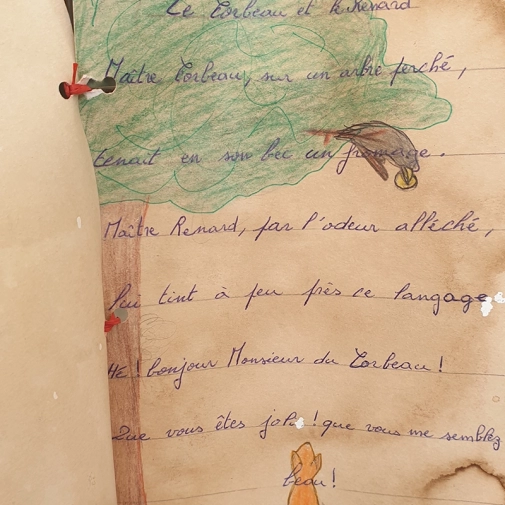 Le Corbeau et le Renard
Maître Corbeau, sur un arbre perché,
tenait en son bec un fromage.
Maître Renard, par l'odeur alléché,
lui tint à peu près ce langage
HE ! bonjour Monsieur du Corbeau !
Que vous êtes joli ! que vous me semblez
beau !